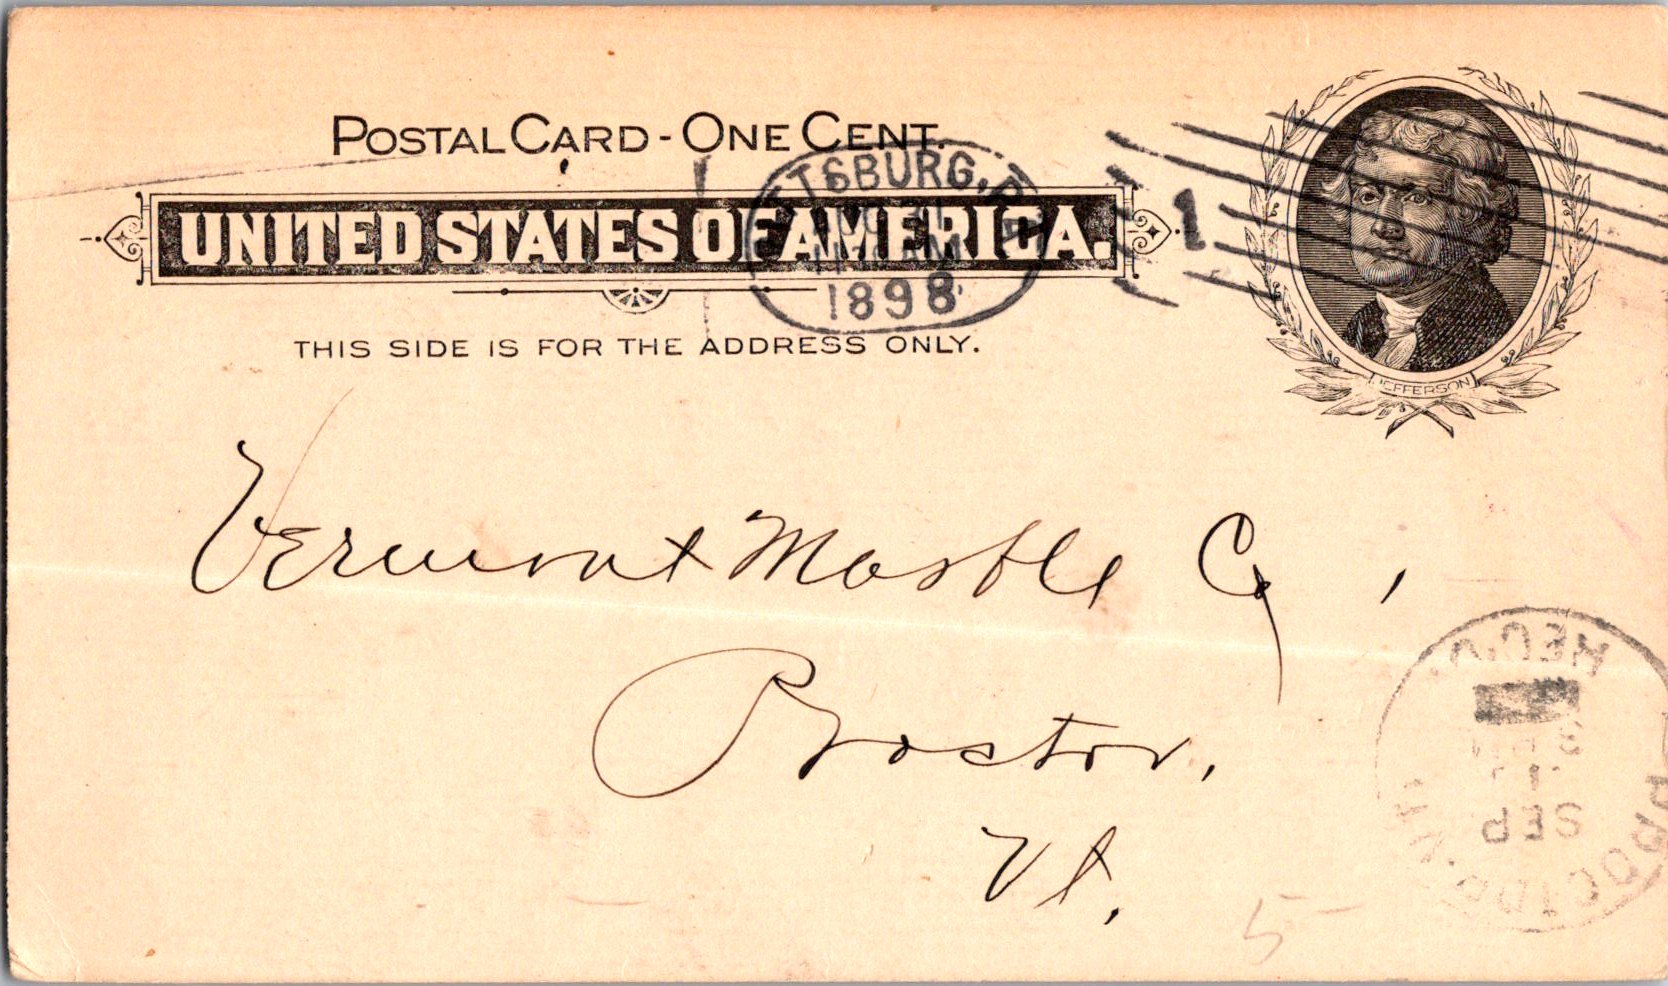 POSTAL CARD - ONE CENT.
UNITED STATES OF AMERICA.
THIS SIDE IS FOR THE ADDRESS ONLY.
PITTSBURG, PA
1898
1
JEFFERSON
Vermont Marble Co,
Proctor,
Vt.
REC'D.
SEP
1
5